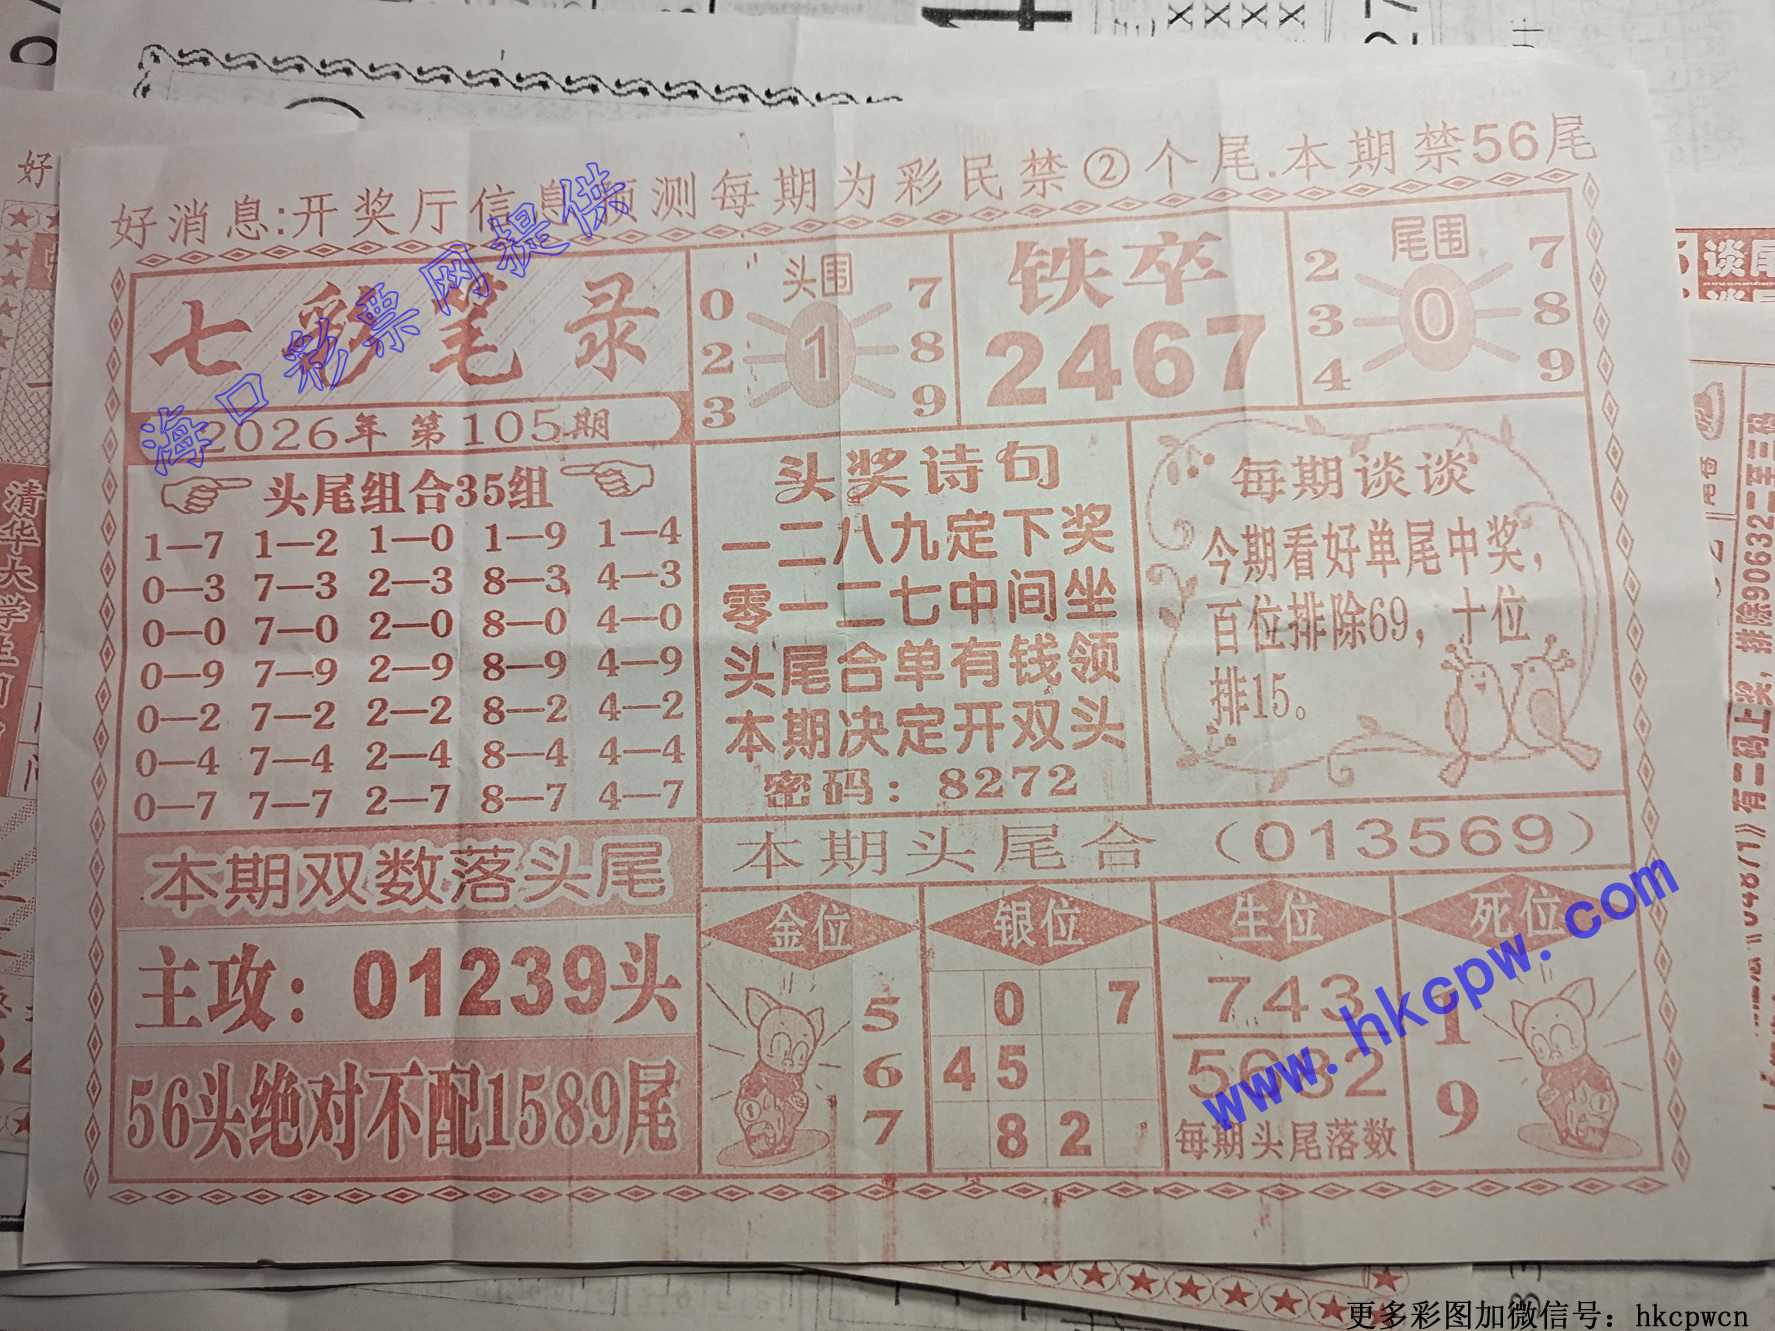 好消息:开奖厅信息预测每期为彩民禁②个尾.本期禁56尾
七彩笔录
2026年 第105期
头围
0 7
2 1 8
3 9
铁卒
2467
尾围
2 7
3 0 8
4 9
头尾组合35组
1—7 1—2 1—0 1—9 1—4
0—3 7—3 2—3 8—3 4—3
0—0 7—0 2—0 8—0 4—0
0—9 7—9 2—9 8—9 4—9
0—2 7—2 2—2 8—2 4—2
0—4 7—4 2—4 8—4 4—4
0—7 7—7 2—7 8—7 4—7
头奖诗句
一二八九定下奖
零一二七中间坐
头尾合单有钱领
本期决定开双头
密码: 8272
每期谈谈
今期看好单尾中奖,
百位排除69, 十位
排15。
本期双数落头尾
主攻: 01239头
56头绝对不配1589尾
本期头尾合 (013569)
金位
5
6
7
银位
0 7
45
82
生位
743
5082
每期头尾落数
死位
1
9
海口彩票网提供
www.hkcpw.com
更多彩图加微信号: hkcpwcn
清华大学
谈尾